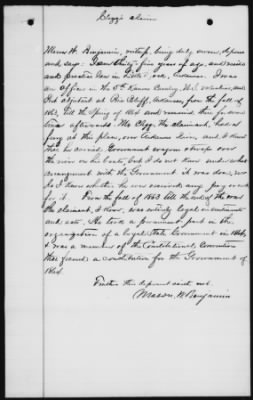 Clegg's claim
M W. Benjamin, witness, being duly sworn, deposes
and says: I am thirty-five years of age, and reside
and practice law in Little Rock, Arkansas. I was
an officer in the 5th Kansas Cavalry, U.S. Volunteers, and
Post adjutant at Pine Bluff, Arkansas, from the fall of
1863, till the Spring of 1864 and remained there for some
time afterwards. Mr. Clegg the claimant, had a
ferry at this place, over Arkansas River, and I know
that he carried Government wagons &c over
the river on his boats, but I do not know under what
arrangement with the Government it was done, nor
do I know whether he ever received any pay
for it. From the fall of 1863 till the end of the war
the claimant, I know, was entirely loyal in sentiments
and acts. He took a prominent part in the
organization of a loyal State Government in 1864,
& was a member of the Constitutional Convention
that framed a constitution for the Government of
1864.
Further this deponent saith not.
Mason W Benjamin